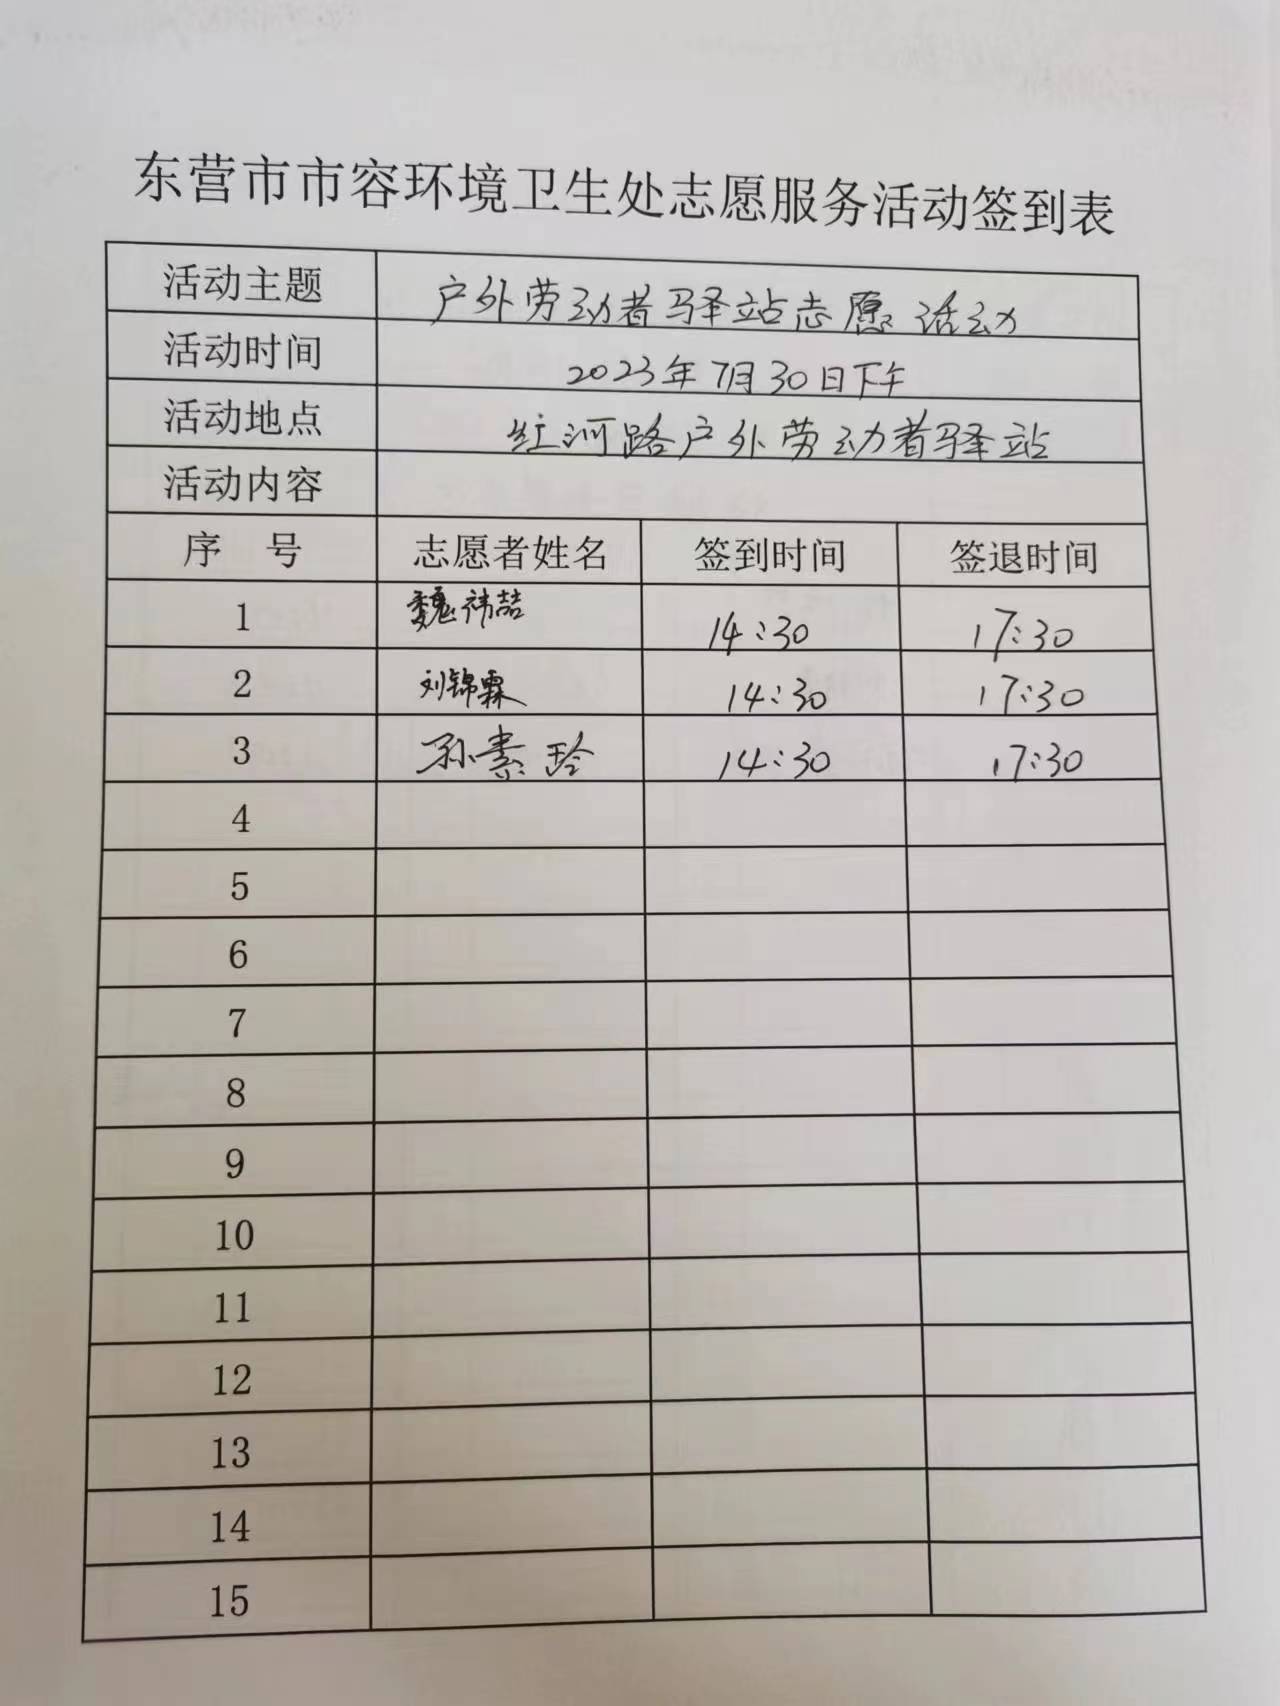 东营市市容环境卫生处志愿服务活动签到表
活动主题 户外劳动者驿站志愿活动
活动时间 2023年7月30日下午
活动地点 红河路户外劳动者驿站
活动内容
序 号 志愿者姓名 签到时间 签退时间
1 魏祎喆 14:30 17:30
2 刘锦霖 14:30 17:30
3 孙素玲 14:30 17:30
4
5
6
7
8
9
10
11
12
13
14
15